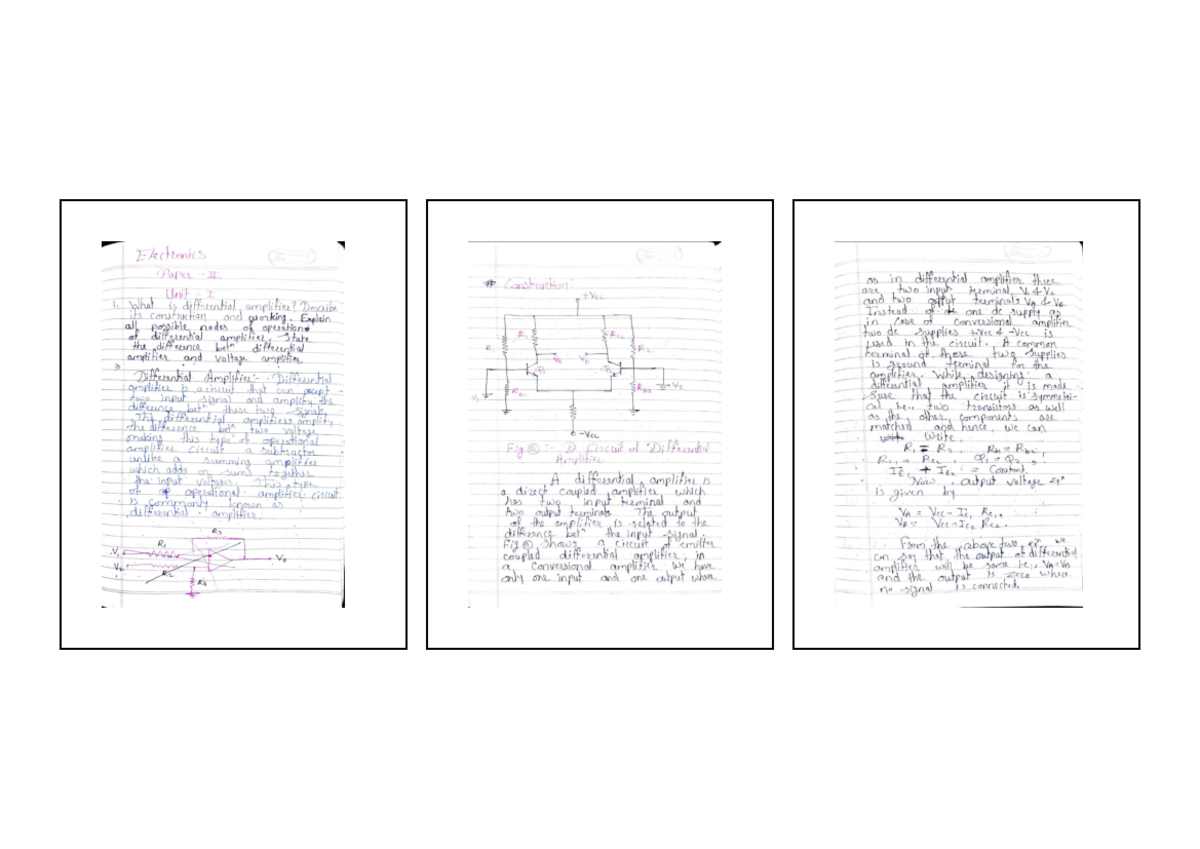 Electronics
Paper - II
Unit - I
1. What is differential amplifier? Describe
its construction and working. Explain
all possible nodes of operation
of differential amplifier. State
the difference betn differential
amplifier and voltage amplifier.
Differential Amplifier:- Differential
amplifier is a circuit that can accept
two input signal and amplify the
difference betn these two signals.
The differential amplifiers amplify
the difference betn two voltage
making this type of operational
amplifier circuit a subtractor
unlike a summing amplifier
which adds or sums together
the input voltages. This type
of op operational amplifier circuit
is commonly known as
differential amplifier.
R3
R1
V1
V2
R2
R4
Vo
# Construction:
+Vcc
-Vcc
Fig :- D Circuit of Differential
Amplifier
A differential amplifier is
a direct coupled amplifier which
has two input terminal and
two output terminals. The output
of the amplifier is related to the
difference betn the input signal.
Fig shows a circuit of emitter
coupled differential amplifier, in
a conversional amplifier we have
only one input and one output where
as in differential amplifier three
are two input terminal V1 & V2
and two output terminals VA & VB.
Instead of one dc supply as
in case of conversional amplifier
two dc supplies +Vcc & -Vcc is
used in the circuit. A common
terminal of those two supplies
is ground terminal for the
amplifier. While designing a
differential amplifier it is made
sure that the circuit is symmetri-
cal i.e., two transistors as well
as the other components are
matched and hence, we can
write.
R1 = R2,
Q1 = Q2,
IE1 + IE2 = Constant.
Now, output voltage
is given by
VA = Vcc - Ic1 Rc1
VB = Vcc - Ic2 Rc2
From the above two eqn we
can say that the output of differential
amplifier will be same i.e., VA=VB
and the output is zero where
no signal is connected.